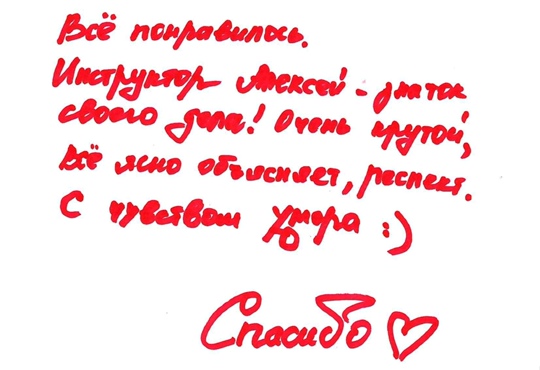 Всё понравилось.
Инструктор Алексей - знаток
своего дела! Очень крутой,
всё ясно объясняет, респект.
С чувством юмора :)
Спасибо ♡